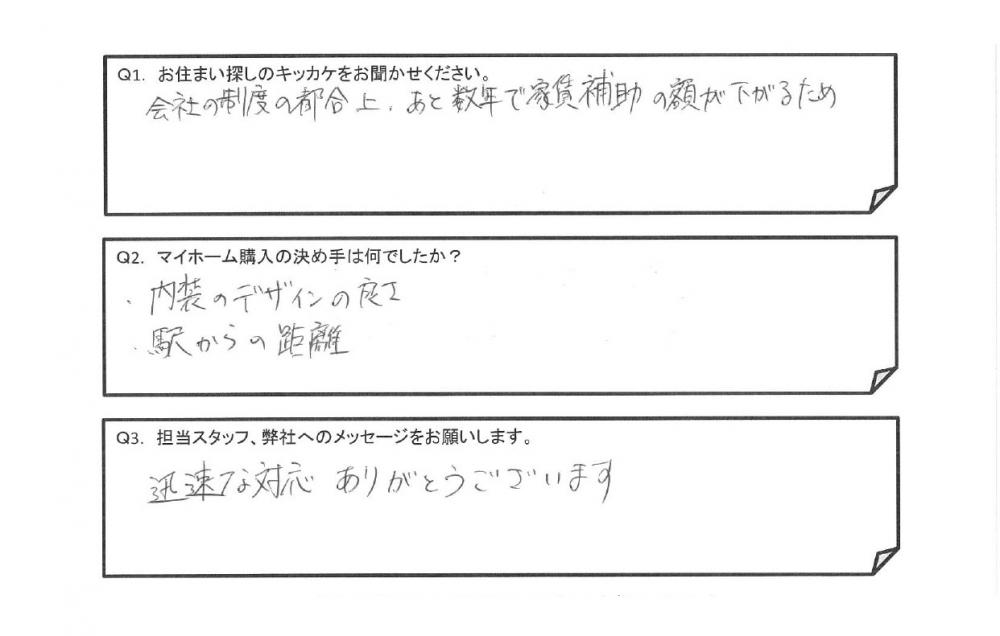 Q1. お住まい探しのキッカケをお聞かせください。
会社の制度の都合上、あと数年で家賃補助の額が下がるため
Q2. マイホーム購入の決め手は何でしたか？
・内装のデザインの良さ
・駅からの距離
Q3. 担当スタッフ、弊社へのメッセージをお願いします。
迅速な対応 ありがとうございます